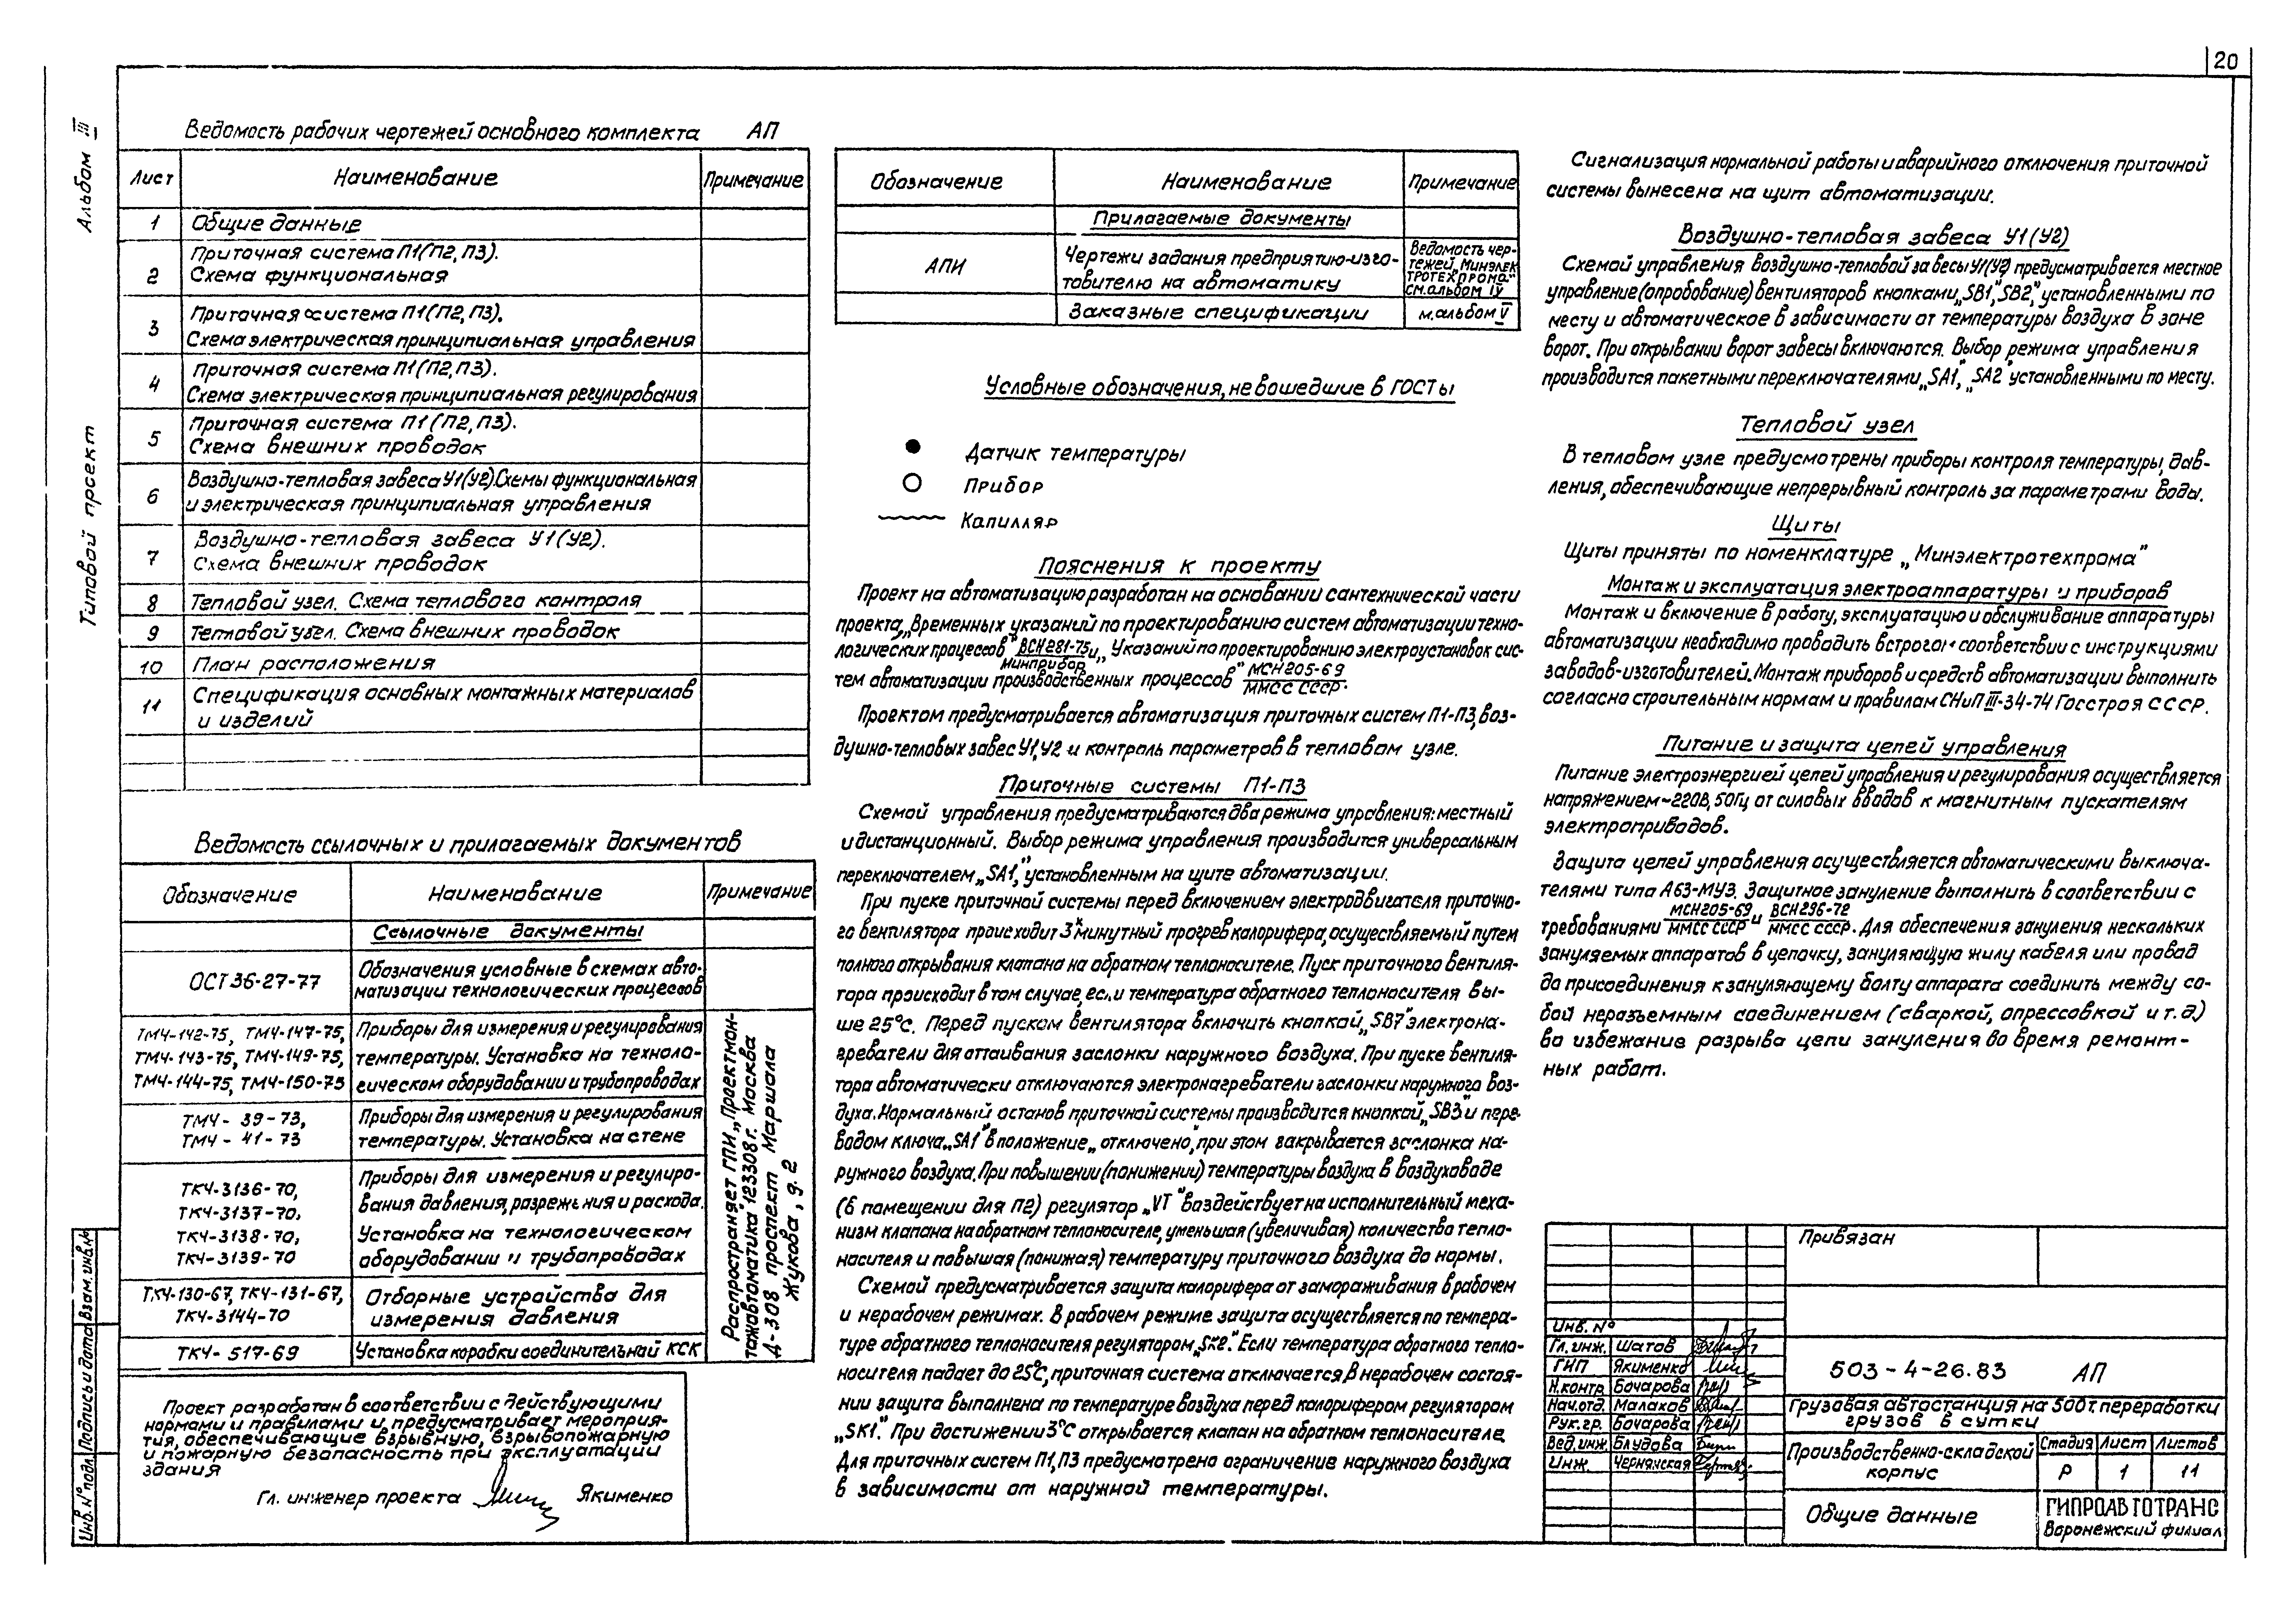 20
Альбом III
Типовой проект
Ведомость рабочих чертежей основного комплекта АП
Лист Наименование Примечание
1 Общие данные
Приточная система П1(П2, П3).
2 Схема функциональная
Приточная система П1(П2, П3).
3
Схема электрическая принципиальная управления
Приточная система П1(П2, П3).
4
Схема электрическая принципиальная регулирования
Приточная система П1(П2, П3).
5
Схема внешних проводок
Воздушно-тепловая завеса У1(У2). Схемы функциональная
6
и электрическая принципиальная управления
Воздушно-тепловая завеса У1(У2).
7
Схема внешних проводок
8 Тепловой узел. Схема теплового контроля
9 Тепловой узел. Схема внешних проводок
10 План расположения
Спецификация основных монтажных материалов
11
и изделий
Ведомость ссылочных и прилагаемых документов
Обозначение Наименование Примечание
Ссылочные документы
ОСТ 36-27-77 Обозначения условные в схемах авто-
матизации технологических процессов
ТМЧ-142-75, ТМЧ-147-75, Приборы для измерения и регулирования
ТМЧ-143-75, ТМЧ-149-75, температуры. Установка на техноло-
ТМЧ-144-75, ТМЧ-150-75 гическом оборудовании и трубопроводах
ТМЧ-39-73, Приборы для измерения и регулирования
ТМЧ-41-73 температуры. Установка на стене
Приборы для измерения и регулиро-
ТКЧ-3136-70,
вания давления, разрежения и расхода.
ТКЧ-3137-70,
ТКЧ-3138-70, Установка на технологическом
ТКЧ-3139-70 оборудовании и трубопроводах
ТКЧ-130-67, ТКЧ-131-67, Отборные устройства для
ТКЧ-3144-70 измерения давления
ТКЧ-517-69 Установка коробки соединительной КСК
Распространяет ГПИ „Проектмон-
тажавтоматика" 123308 г. Москва
Д-308 проспект Маршала
Жукова, д. 2
Проект разработан в соответствии с действующими
нормами и правилами и предусматривает мероприя-
тия, обеспечивающие взрывную, взрывопожарную
и пожарную безопасность при эксплуатации
здания
Гл. инженер проекта Якименко
Инв. № подл. Подпись и дата Взам. инв. №
Обозначение Наименование Примечание
Прилагаемые документы
АПИ Чертежи задания предприятию-изго-
товителю на автоматику
Ведомость чер-
тежей „Минэлек
тротехпрома"
см. альбом IV
Заказные спецификации м. альбом V
Условные обозначения, не вошедшие в ГОСТы
Датчик температуры
Прибор
Капилляр
Пояснения к проекту
Проект на автоматизацию разработан на основании сантехнической части
проекта, „Временных указаний по проектированию систем автоматизации техно-
логических процессов" ВСН 281-75 Минприбор и „Указаний по проектированию электроустановок сис-
тем автоматизации производственных процессов" МСН 205-69 ММСС СССР.
Проектом предусматривается автоматизация приточных систем П1-П3, воз-
душно-тепловых завес У1, У2 и контроль параметров в тепловом узле.
Приточные системы П1-П3
Схемой управления предусматриваются два режима управления: местный
и дистанционный. Выбор режима управления производится универсальным
переключателем „SA1", установленным на щите автоматизации.
При пуске приточной системы перед включением электродвигателя приточно-
го вентилятора происходит 3х минутный прогрев калорифера, осуществляемый путем
полного открывания клапана на обратном теплоносителе. Пуск приточного вентиля-
тора происходит в том случае, если температура обратного теплоносителя вы-
ше 25°С. Перед пуском вентилятора включить кнопкой „SB7" электрона-
греватели для оттаивания заслонки наружного воздуха. При пуске вентиля-
тора автоматически отключаются электронагреватели заслонки наружного воз-
духа. Нормальный останов приточной системы производится кнопкой „SB3" и пере-
водом ключа „SA1" в положение „отключено", при этом закрывается заслонка на-
ружного воздуха. При повышении (понижении) температуры воздуха в воздуховоде
(в помещении для П2) регулятор „VT" воздействует на исполнительный меха-
низм клапана на обратном теплоносителе, уменьшая (увеличивая) количество тепло-
носителя и повышая (понижая) температуру приточного воздуха до нормы.
Схемой предусматривается защита калорифера от замораживания в рабочем
и нерабочем режимах. В рабочем режиме защита осуществляется по темпера-
туре обратного теплоносителя регулятором „SK2". Если температура обратного тепло-
носителя падает до 25°С, приточная система отключается. В нерабочем состоя-
нии защита выполнена по температуре воздуха перед калорифером регулятором
„SK1". При достижении 3°С открывается клапан на обратном теплоносителе.
Для приточных систем П1, П3 предусмотрено ограничение наружного воздуха
в зависимости от наружной температуры.
Сигнализация нормальной работы и аварийного отключения приточной
системы вынесена на щит автоматизации.
Воздушно-тепловая завеса У1(У2)
Схемой управления воздушно-тепловой завесы У1(У2) предусматривается местное
управление (опробование) вентиляторов кнопками „SB1", „SB2", установленными по
месту и автоматическое в зависимости от температуры воздуха в зоне
ворот. При открывании ворот завесы включаются. Выбор режима управления
производится пакетными переключателями „SA1", „SA2" установленными по месту.
Тепловой узел
В тепловом узле предусмотрены приборы контроля температуры, дав-
ления, обеспечивающие непрерывный контроль за параметрами воды.
Щиты
Щиты приняты по номенклатуре „Минэлектротехпрома"
Монтаж и эксплуатация электроаппаратуры и приборов
Монтаж и включение в работу, эксплуатацию и обслуживание аппаратуры
автоматизации необходимо проводить в строгом соответствии с инструкциями
заводов-изготовителей. Монтаж приборов и средств автоматизации выполнить
согласно строительным нормам и правилам СНиП III-34-74 Госстроя СССР.
Питание и защита цепей управления
Питание электроэнергией цепей управления и регулирования осуществляется
напряжением ~220В, 50Гц от силовых вводов к магнитным пускателям
электроприводов.
Защита цепей управления осуществляется автоматическими выключа-
телями типа А63-МУ3. Защитное зануление выполнить в соответствии с
требованиями МСН205-69 ММСС СССР и ВСН296-72 ММСС СССР. Для обеспечения зануления нескольких
зануляемых аппаратов в цепочку, зануляющую жилу кабеля или провод
до присоединения к зануляющему болту аппарата соединить между со-
бой неразъемным соединением (сваркой, опрессовкой и т.д.)
во избежание разрыва цепи зануления во время ремонт-
ных работ.
Привязан
Инв. №
Гл. инж. Шатов
ГИП Якименко
Н.контр. Бочарова
Нач.отд. Малахов
Рук.гр. Бочарова
Вед.инж. Блудова
Инж. Чернянская
503-4-26.83 АП
Грузовая автостанция на 500т. переработки
грузов в сутки
Производственно-складской
корпус
Стадия Лист Листов
Р 1 11
Общие данные
ГИПРОАВТОТРАНС
Воронежский филиал